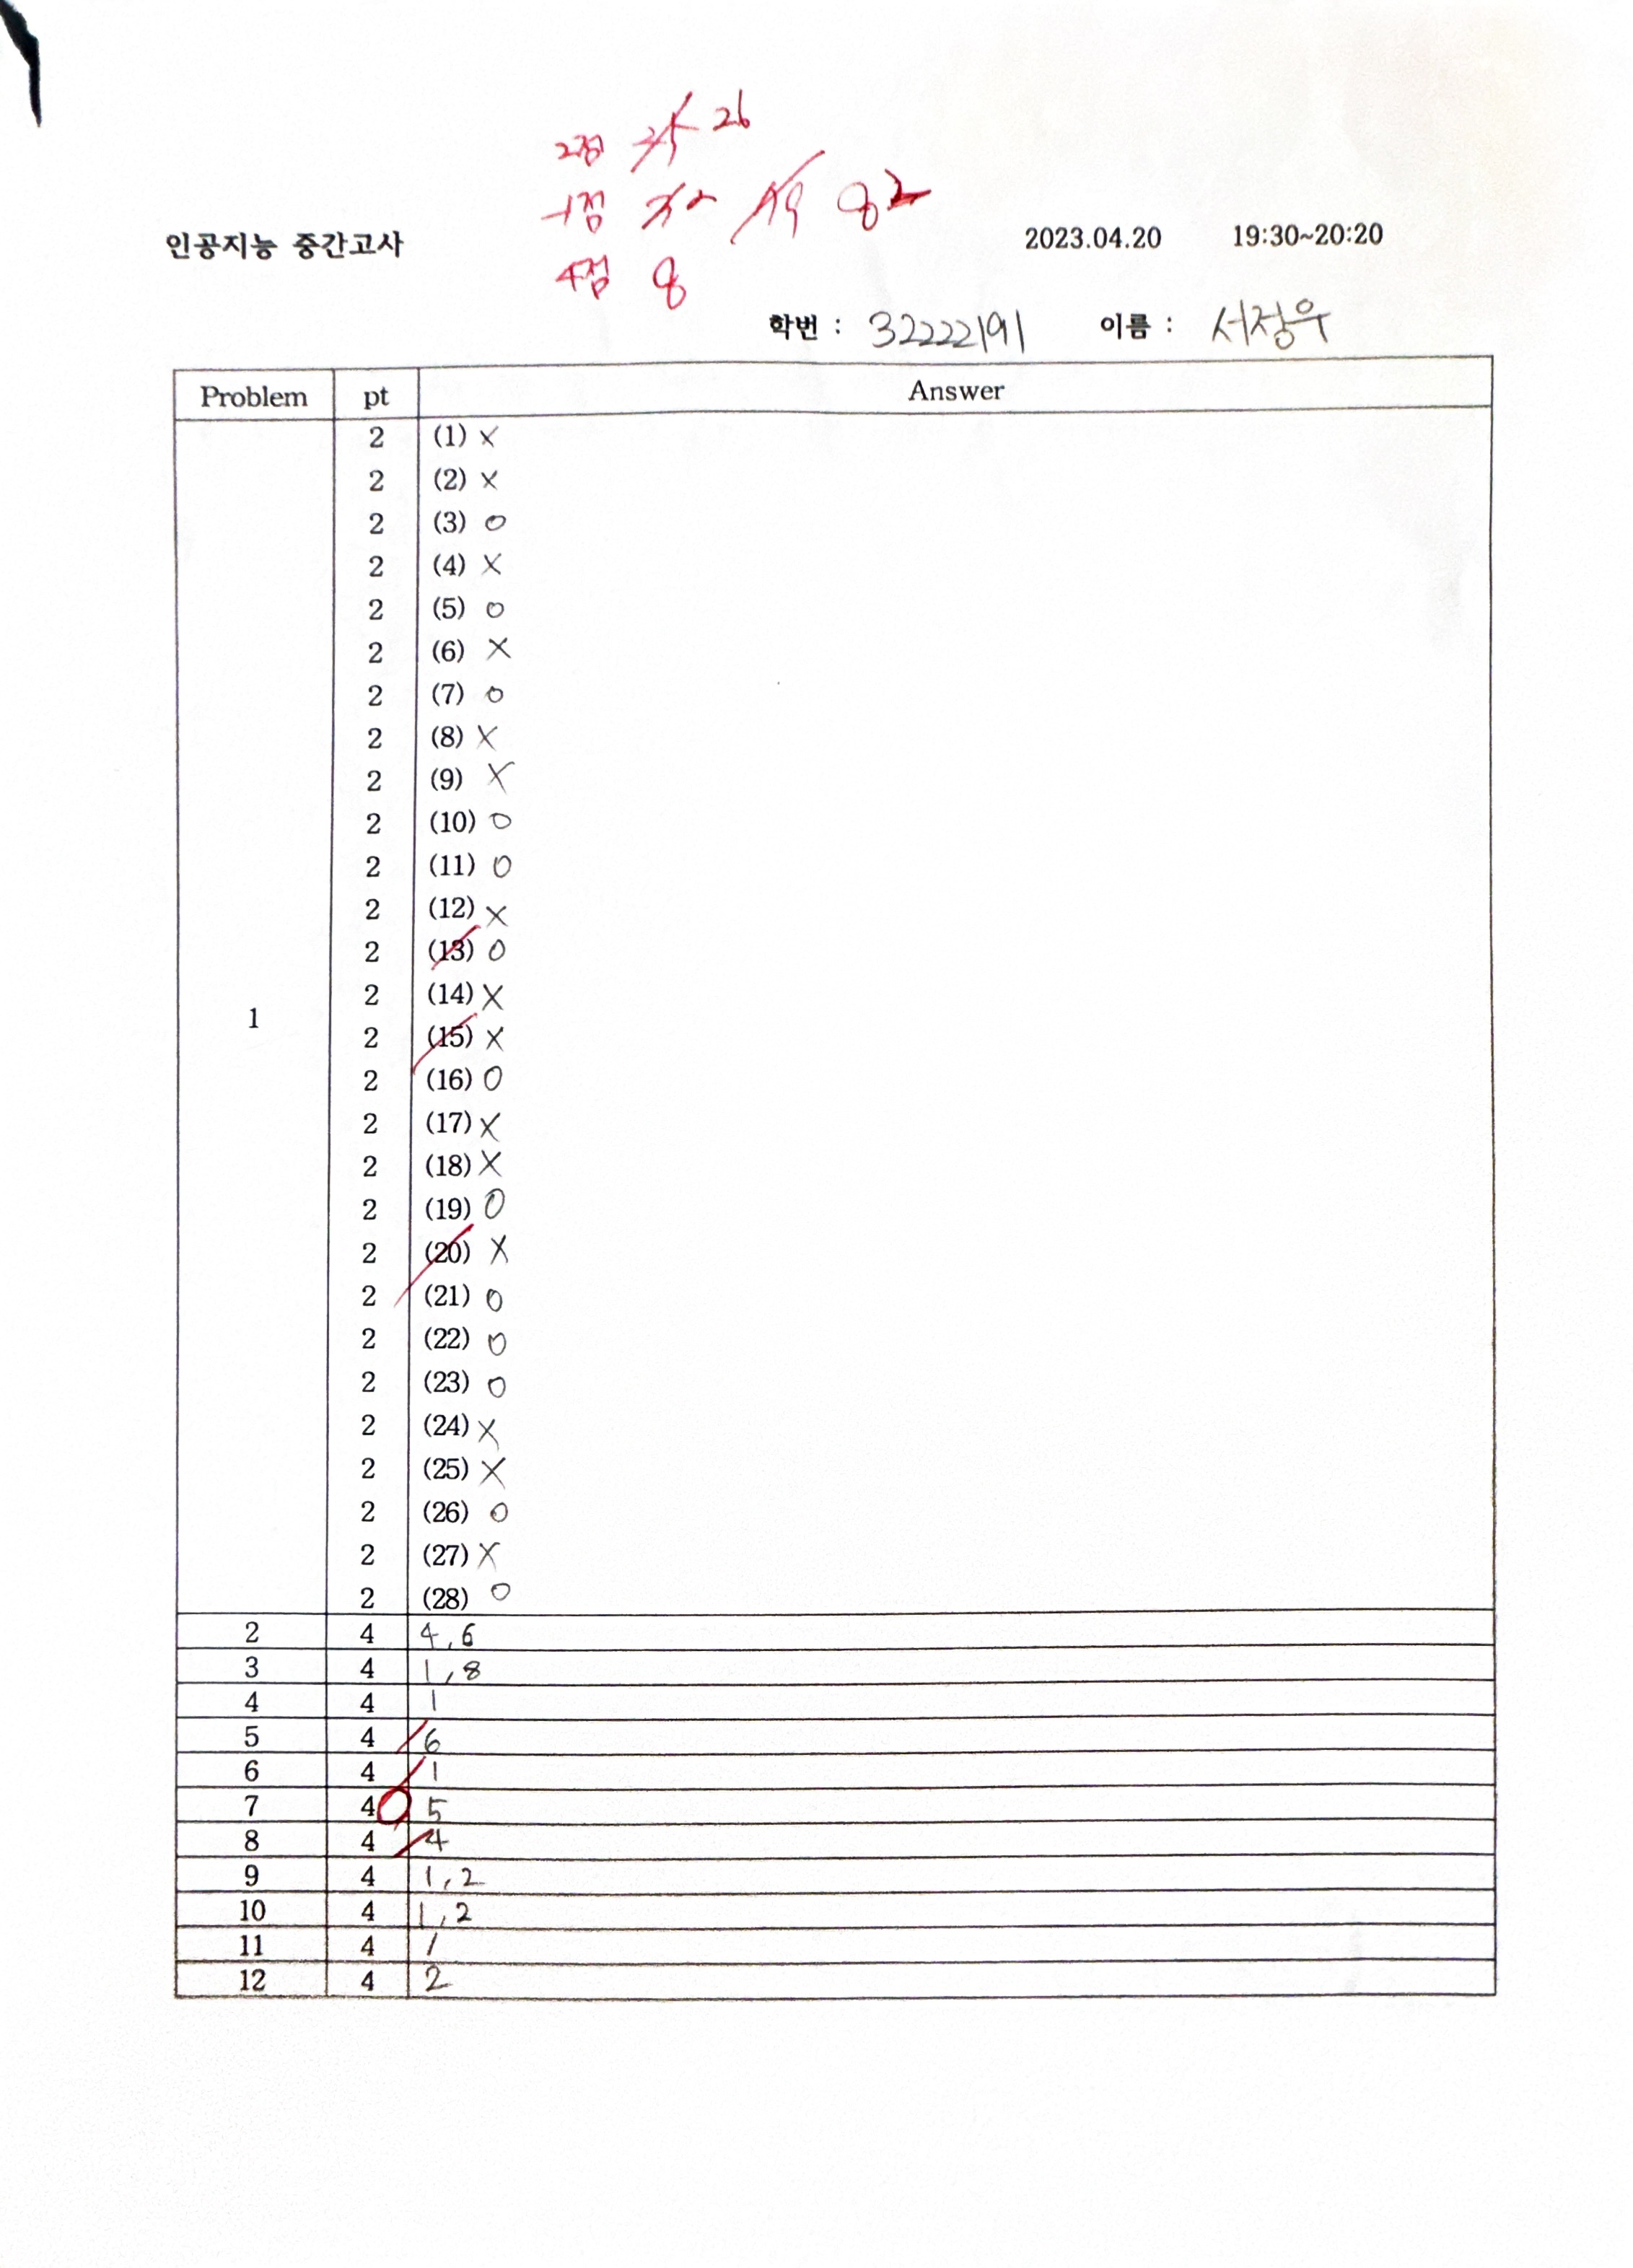 2점 25 26
-1점 79 82
4점 8
인공지능 중간고사 2023.04.20 19:30~20:20
학번 : 32222191 이름 : 서정우
Problem pt Answer
2 (1) X
2 (2) X
2 (3) O
2 (4) X
2 (5) O
2 (6) X
2 (7) O
2 (8) X
2 (9) X
2 (10) O
2 (11) O
2 (12) X
2 (13) O
2 (14) X
1
2 (15) X
2 (16) O
2 (17) X
2 (18) X
2 (19) O
2 (20) X
2 (21) O
2 (22) O
2 (23) O
2 (24) X
2 (25) X
2 (26) O
2 (27) X
2 (28) O
2 4 4, 6
3 4 1, 8
4 4 1
5 4 6
6 4 1
7 4 5
8 4 4
9 4 1, 2
10 4 1, 2
11 4 1
12 4 2